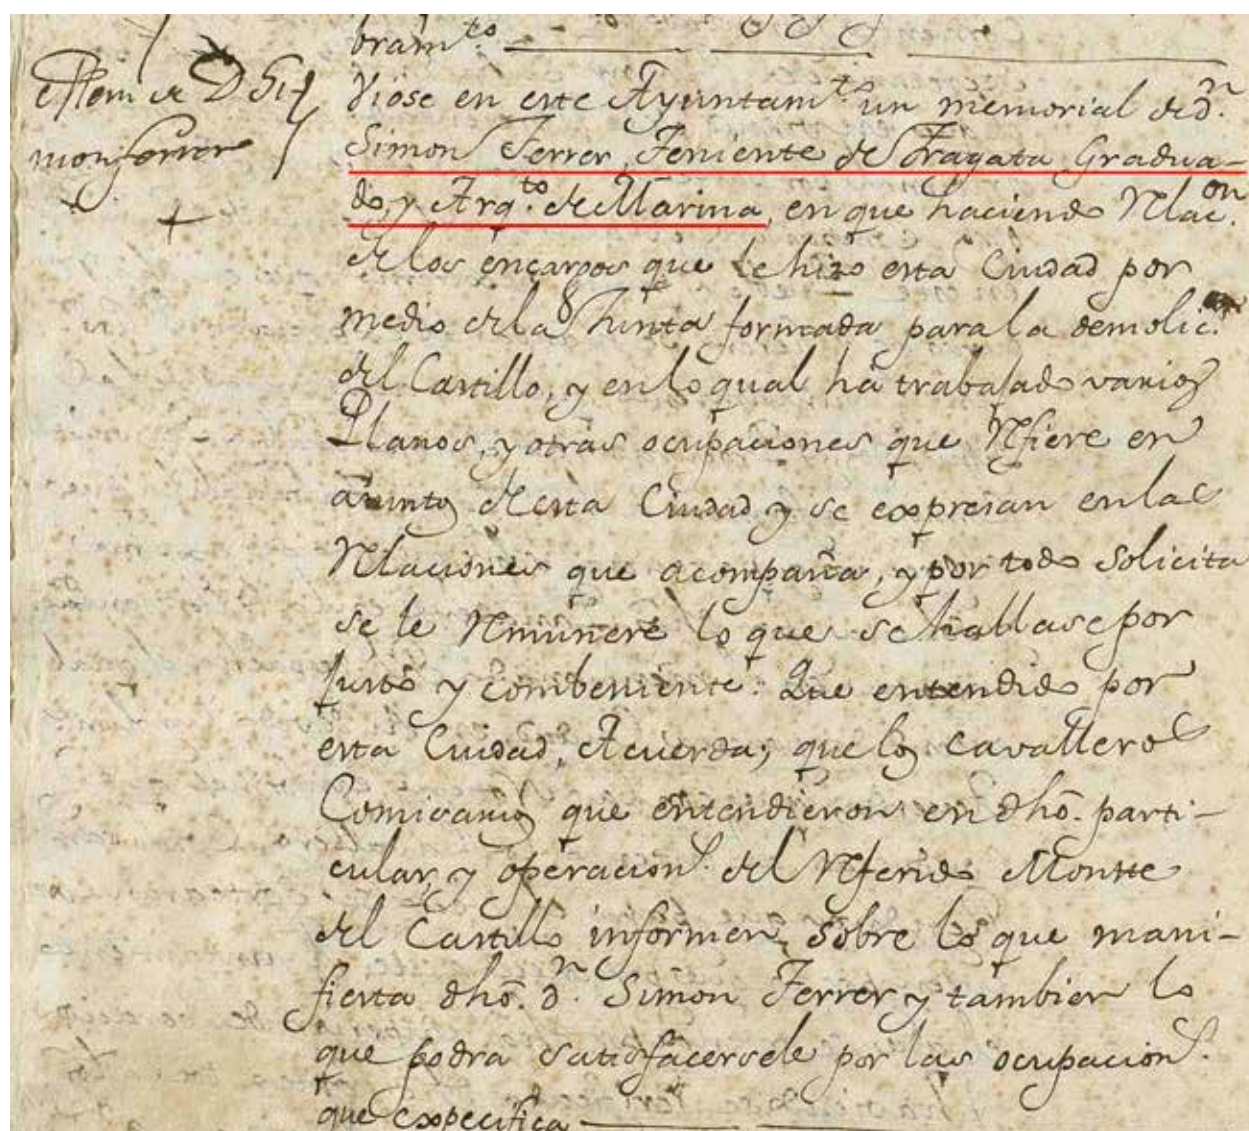 bramto.
Mem. de D. Si-
mon ferrer
Viose en este Ayuntamto. un memorial de dn.
Simon Ferrer, Teniente de Fragata Gradua-
do, y Arqto. de Marina, en que haciendo Relacon.
de los encargos que le hizo esta Ciudad por
medio de la Junta formada para la demolic.
del Castillo, y en lo qual há trabajado varios
Planos, y otras ocupaciones que Refiere en
asuntos de esta Ciudad y se expresan en las
Relaciones que acompaña, y por todo solicita
se le Remunere lo que se hallase por
Justo y combeniente. Que entendido por
esta Ciudad, Acuerda; que los Cavalleros
Comisarios que entendieron en dho. parti-
cular, y operacion. del Referido Montte
del Castillo informen, sobre lo que mani-
fiesta dho. dn. Simon Ferrer y tambien lo
que podra satisfacersele por las ocupacion.
que expecifica